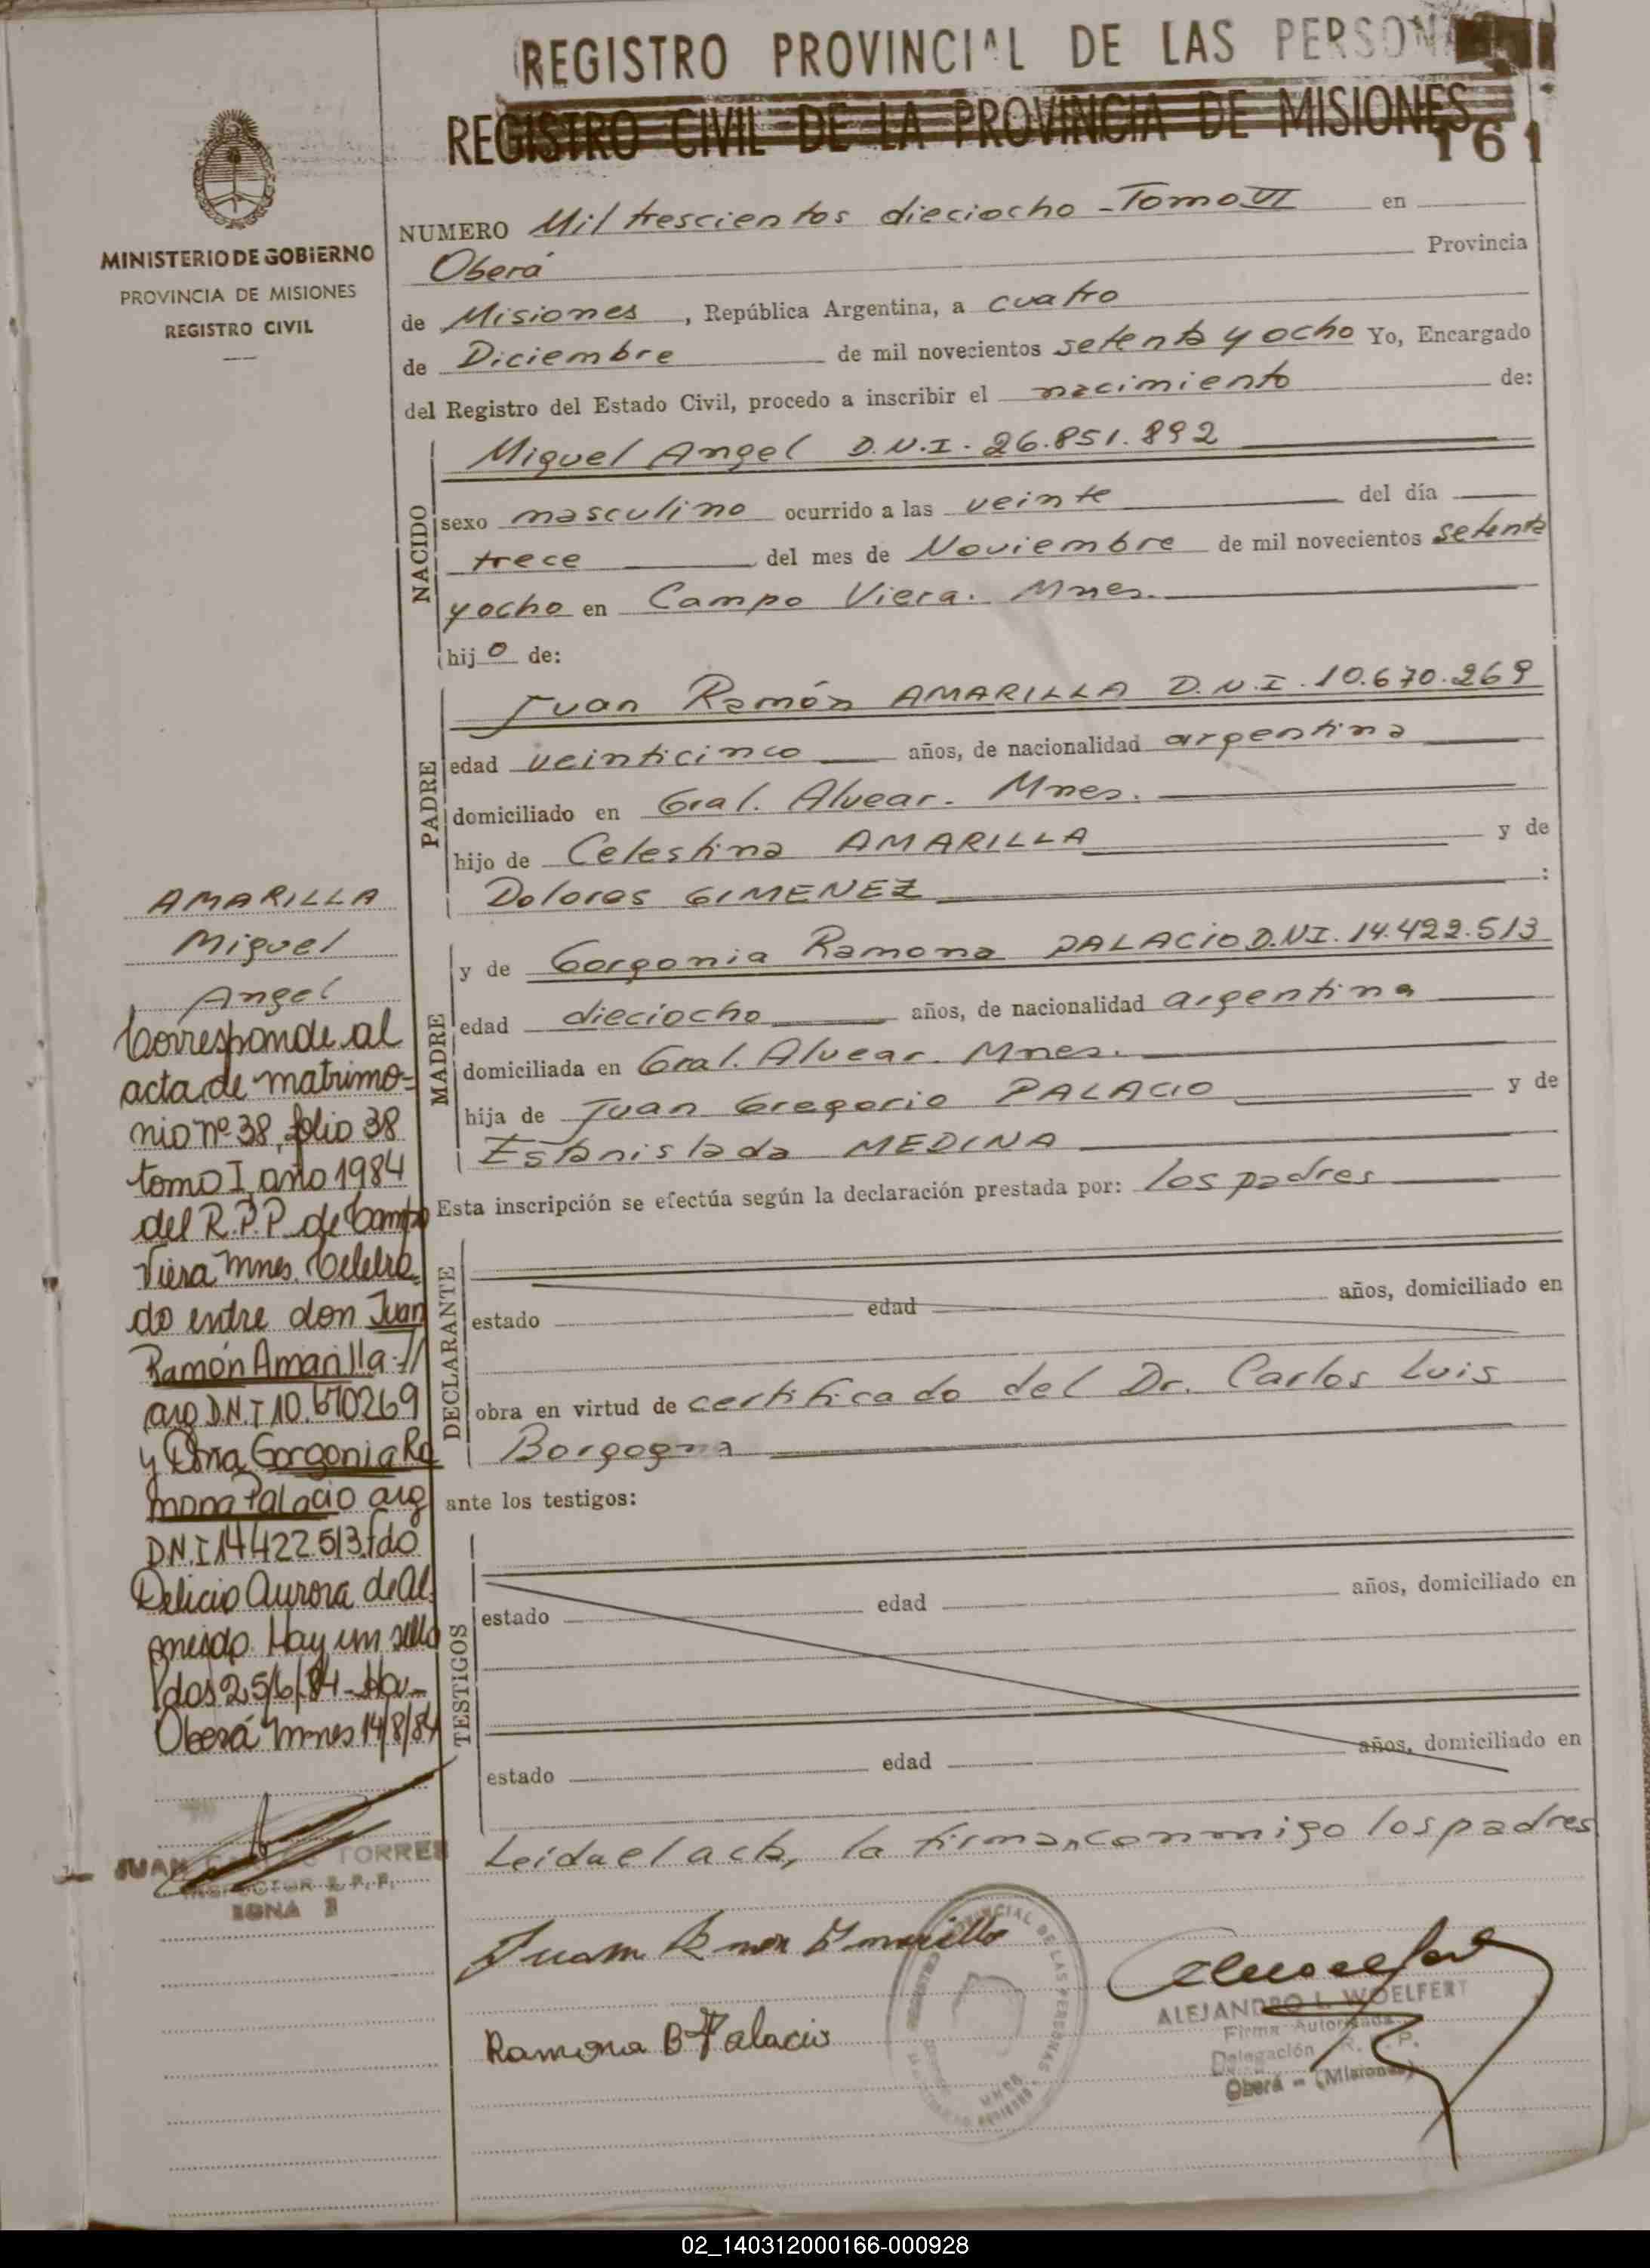 REGISTRO PROVINCIAL DE LAS
REGISTRO CIVIL DE LA PROVINCIA DE MISIONES
161
MINISTERIO DE GOBIERNO
PROVINCIA DE MISIONES
REGISTRO CIVIL
NUMERO Mil trescientos dieciocho - Tomo VI en
Oberá Provincia
de Misiones, República Argentina, a cuatro
de Diciembre de mil novecientos setenta y ocho Yo, Encargado
del Registro del Estado Civil, procedo a inscribir el nacimiento de:
NACIDO
Miguel Angel D.N.I. 26.851.892
sexo masculino ocurrido a las veinte del día
trece del mes de Noviembre de mil novecientos setenta
y ocho en Campo Viera. Mnes.
hijo de:
PADRE
Juan Ramón AMARILLA D.N.I. 10.670.269
edad veinticinco años, de nacionalidad argentina
domiciliado en Gral. Alvear. Mnes.
hijo de Celestino AMARILLA y de
Dolores GIMENEZ :
MADRE
y de Gorgonia Ramona PALACIO D.N.I. 14.422.513
edad dieciocho años, de nacionalidad argentina
domiciliada en Gral. Alvear. Mnes.
hija de Juan Gregorio PALACIO y de
Estanislada MEDINA
Esta inscripción se efectúa según la declaración prestada por: los padres
DECLARANTE
estado edad años, domiciliado en
obra en virtud de certificado del Dr. Carlos Luis
Borgogna
ante los testigos:
TESTIGOS
estado edad años, domiciliado en
estado edad años, domiciliado en
Leida el acta, la firman conmigo los padres
Juan Ramon Amarilla
Ramona B Palacio
ALEJANDRO L. WOELFERT
Firma Autorizada
Delegación R. P. P.
Oberá - (Misiones)
AMARILLA
Miguel
Angel
Corresponde al
acta de matrimo-
nio nº 38, folio 38
tomo I, año 1984
del R.P.P. de Campo
Viera Mnes. Celebra
do entre don Juan
Ramón Amarilla
arg D.N.I 10.670269
y Doña Gorgonia Ra
mona Palacio arg
D.N.I 14422513 fdo
Delicio Aurora de
Hay un sello
25/6/84
Oberá Mnes 14/8/84
JUAN TORRES
INSPECTOR R. P. P.
ZONA
02_140312000166-000928